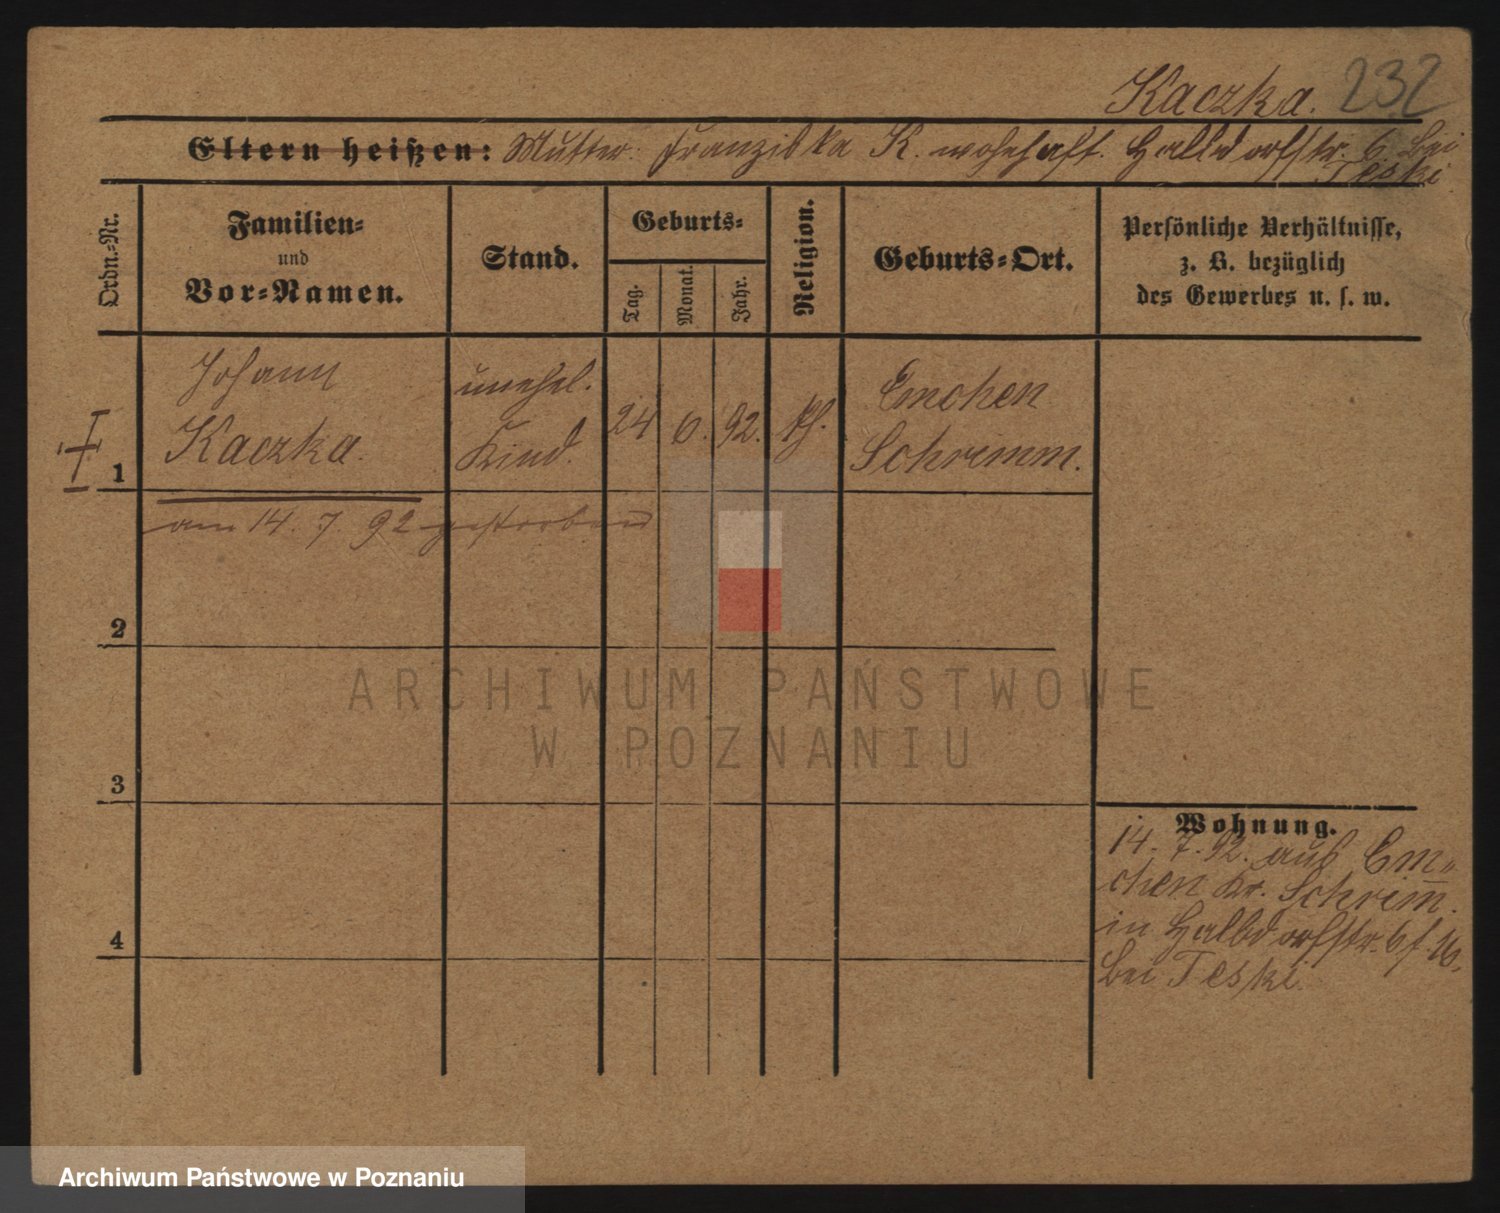 Kaczka. 232
Eltern heißen: Mutter: Franziska K. wohnhaft. Halbdorfstr. 6. bei
Teski
Ordn.-Nr.
Familien-
und
Vor-Namen.
Stand.
Geburts-
Tag.
Monat.
Jahr.
Religion.
Geburts-Ort.
Persönliche Verhältnisse,
z. B. bezüglich
des Gewerbes u. s. w.
Johann unehel. Emchen
1 Kaczka. Kind. 24 6. 92. kh. Schrimm.
am 14. 7. 92 gestorben
2
3
4
Wohnung.
14. 7. 92. aus Em-
chen Kr. Schrim̅.
in Halbdorfstr. 6
bei Teski.
ARCHIWUM PAŃSTWOWE
W POZNANIU
Archiwum Państwowe w Poznaniu